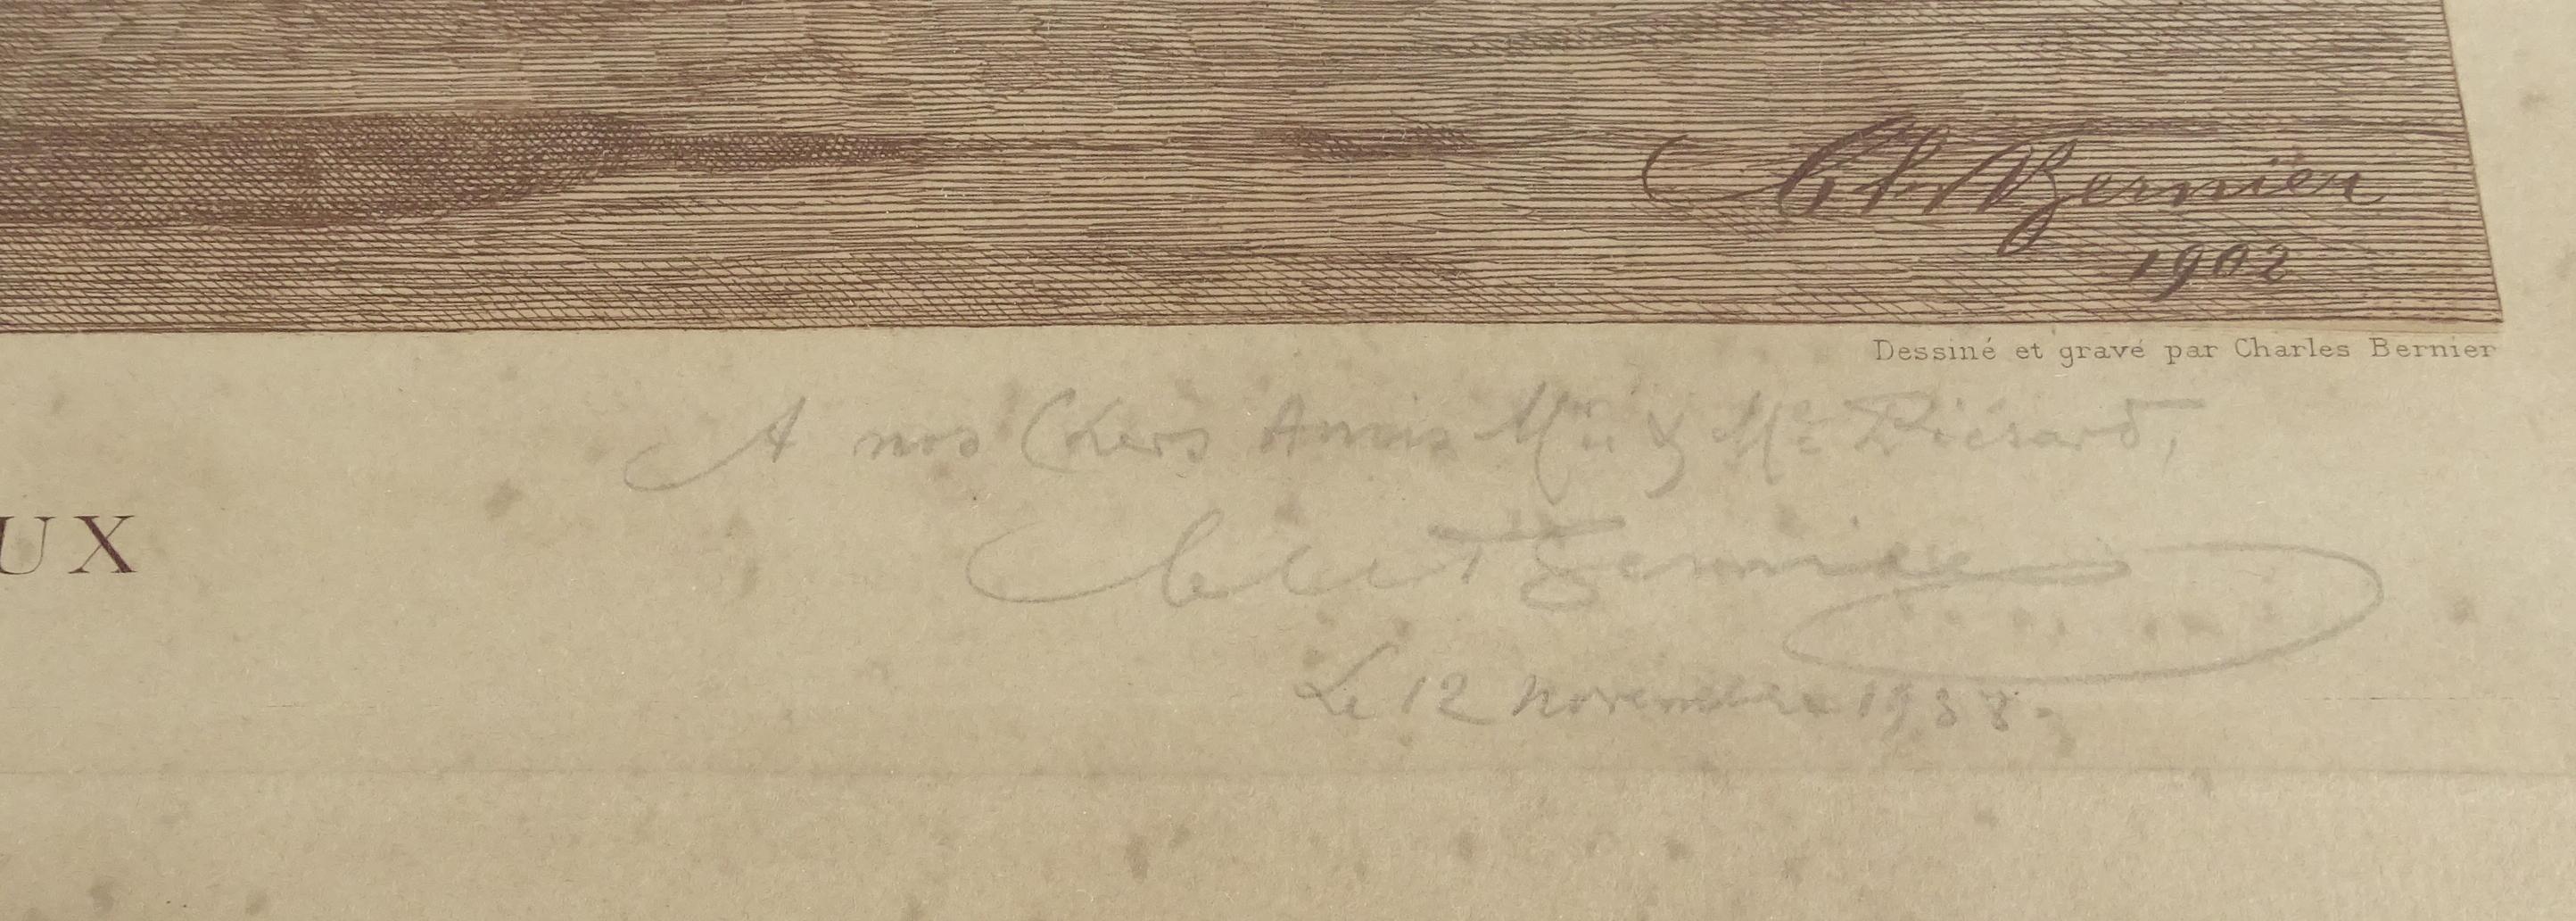 Ch Bernier
1902
Dessiné et gravé par Charles Bernier
A nos Chers Amis Mr & Me Piérard,
UX
Bernier
Le 12 novembre